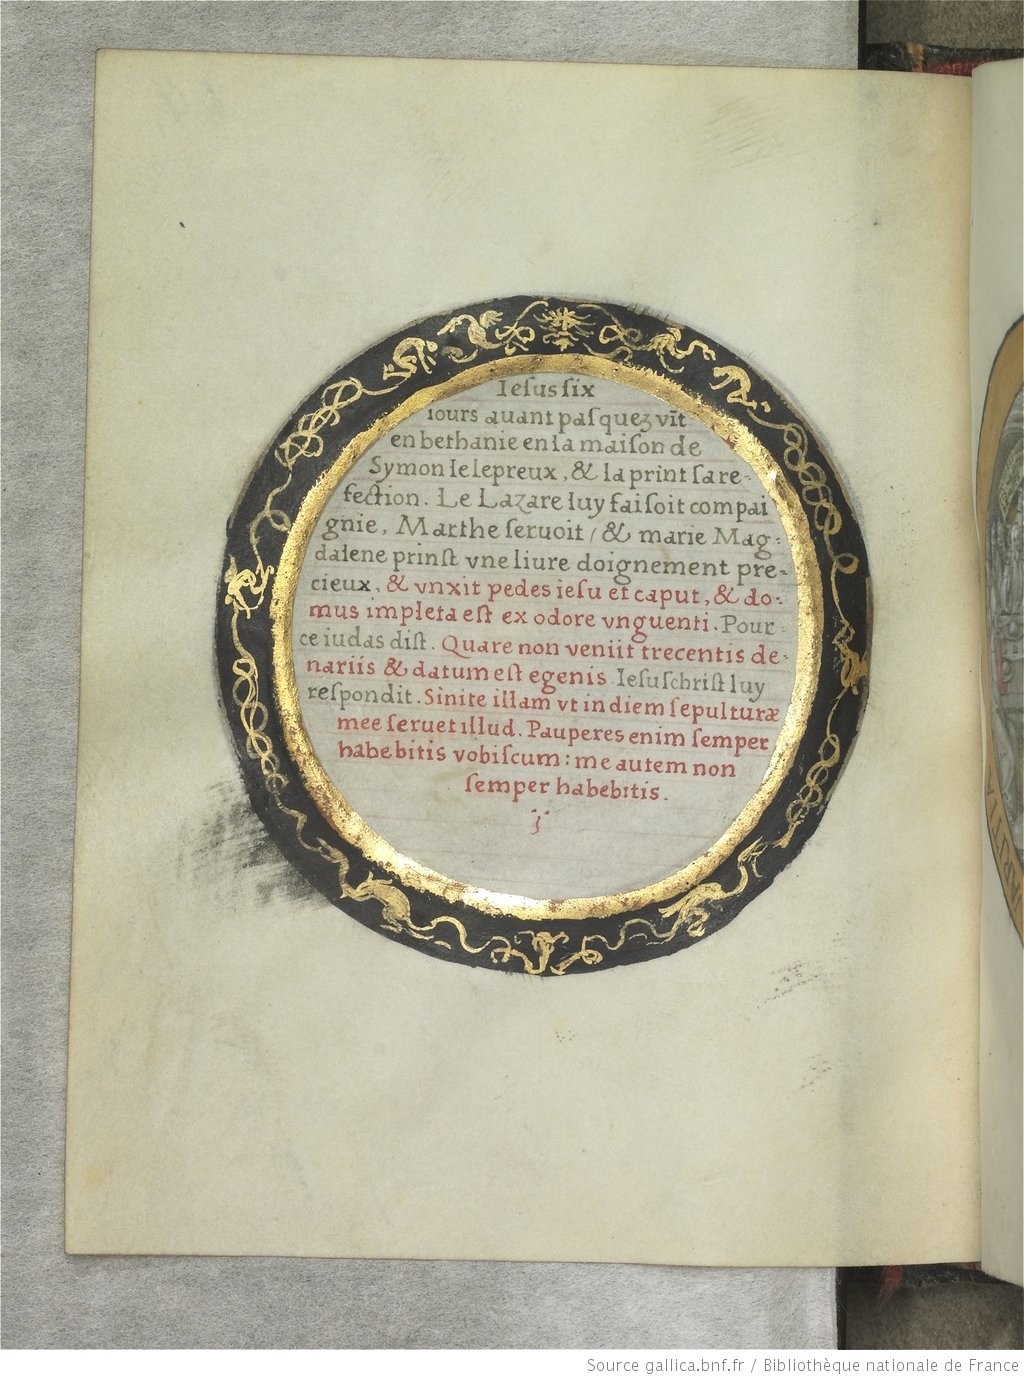 Iesus six
iours auant pasquez vīt
en bethanie en la maison de
Symon le lepreux, & la print sa re-
fection. Le Lazare luy faisoit compai
gnie, Marthe seruoit / & marie Mag-
dalene prinst vne liure doignement pre-
cieux, & vnxit pedes iesu et caput, & do-
mus impleta est ex odore vnguenti. Pour-
ce iudas dist. Quare non veniit trecentis de-
nariis & datum est egenis. Iesuschrist luy
respondit. Sinite illam vt in diem sepulturæ
mee seruet illud. Pauperes enim semper
habebitis vobiscum: me autem non
semper habebitis.
Source gallica.bnf.fr / Bibliothèque nationale de France